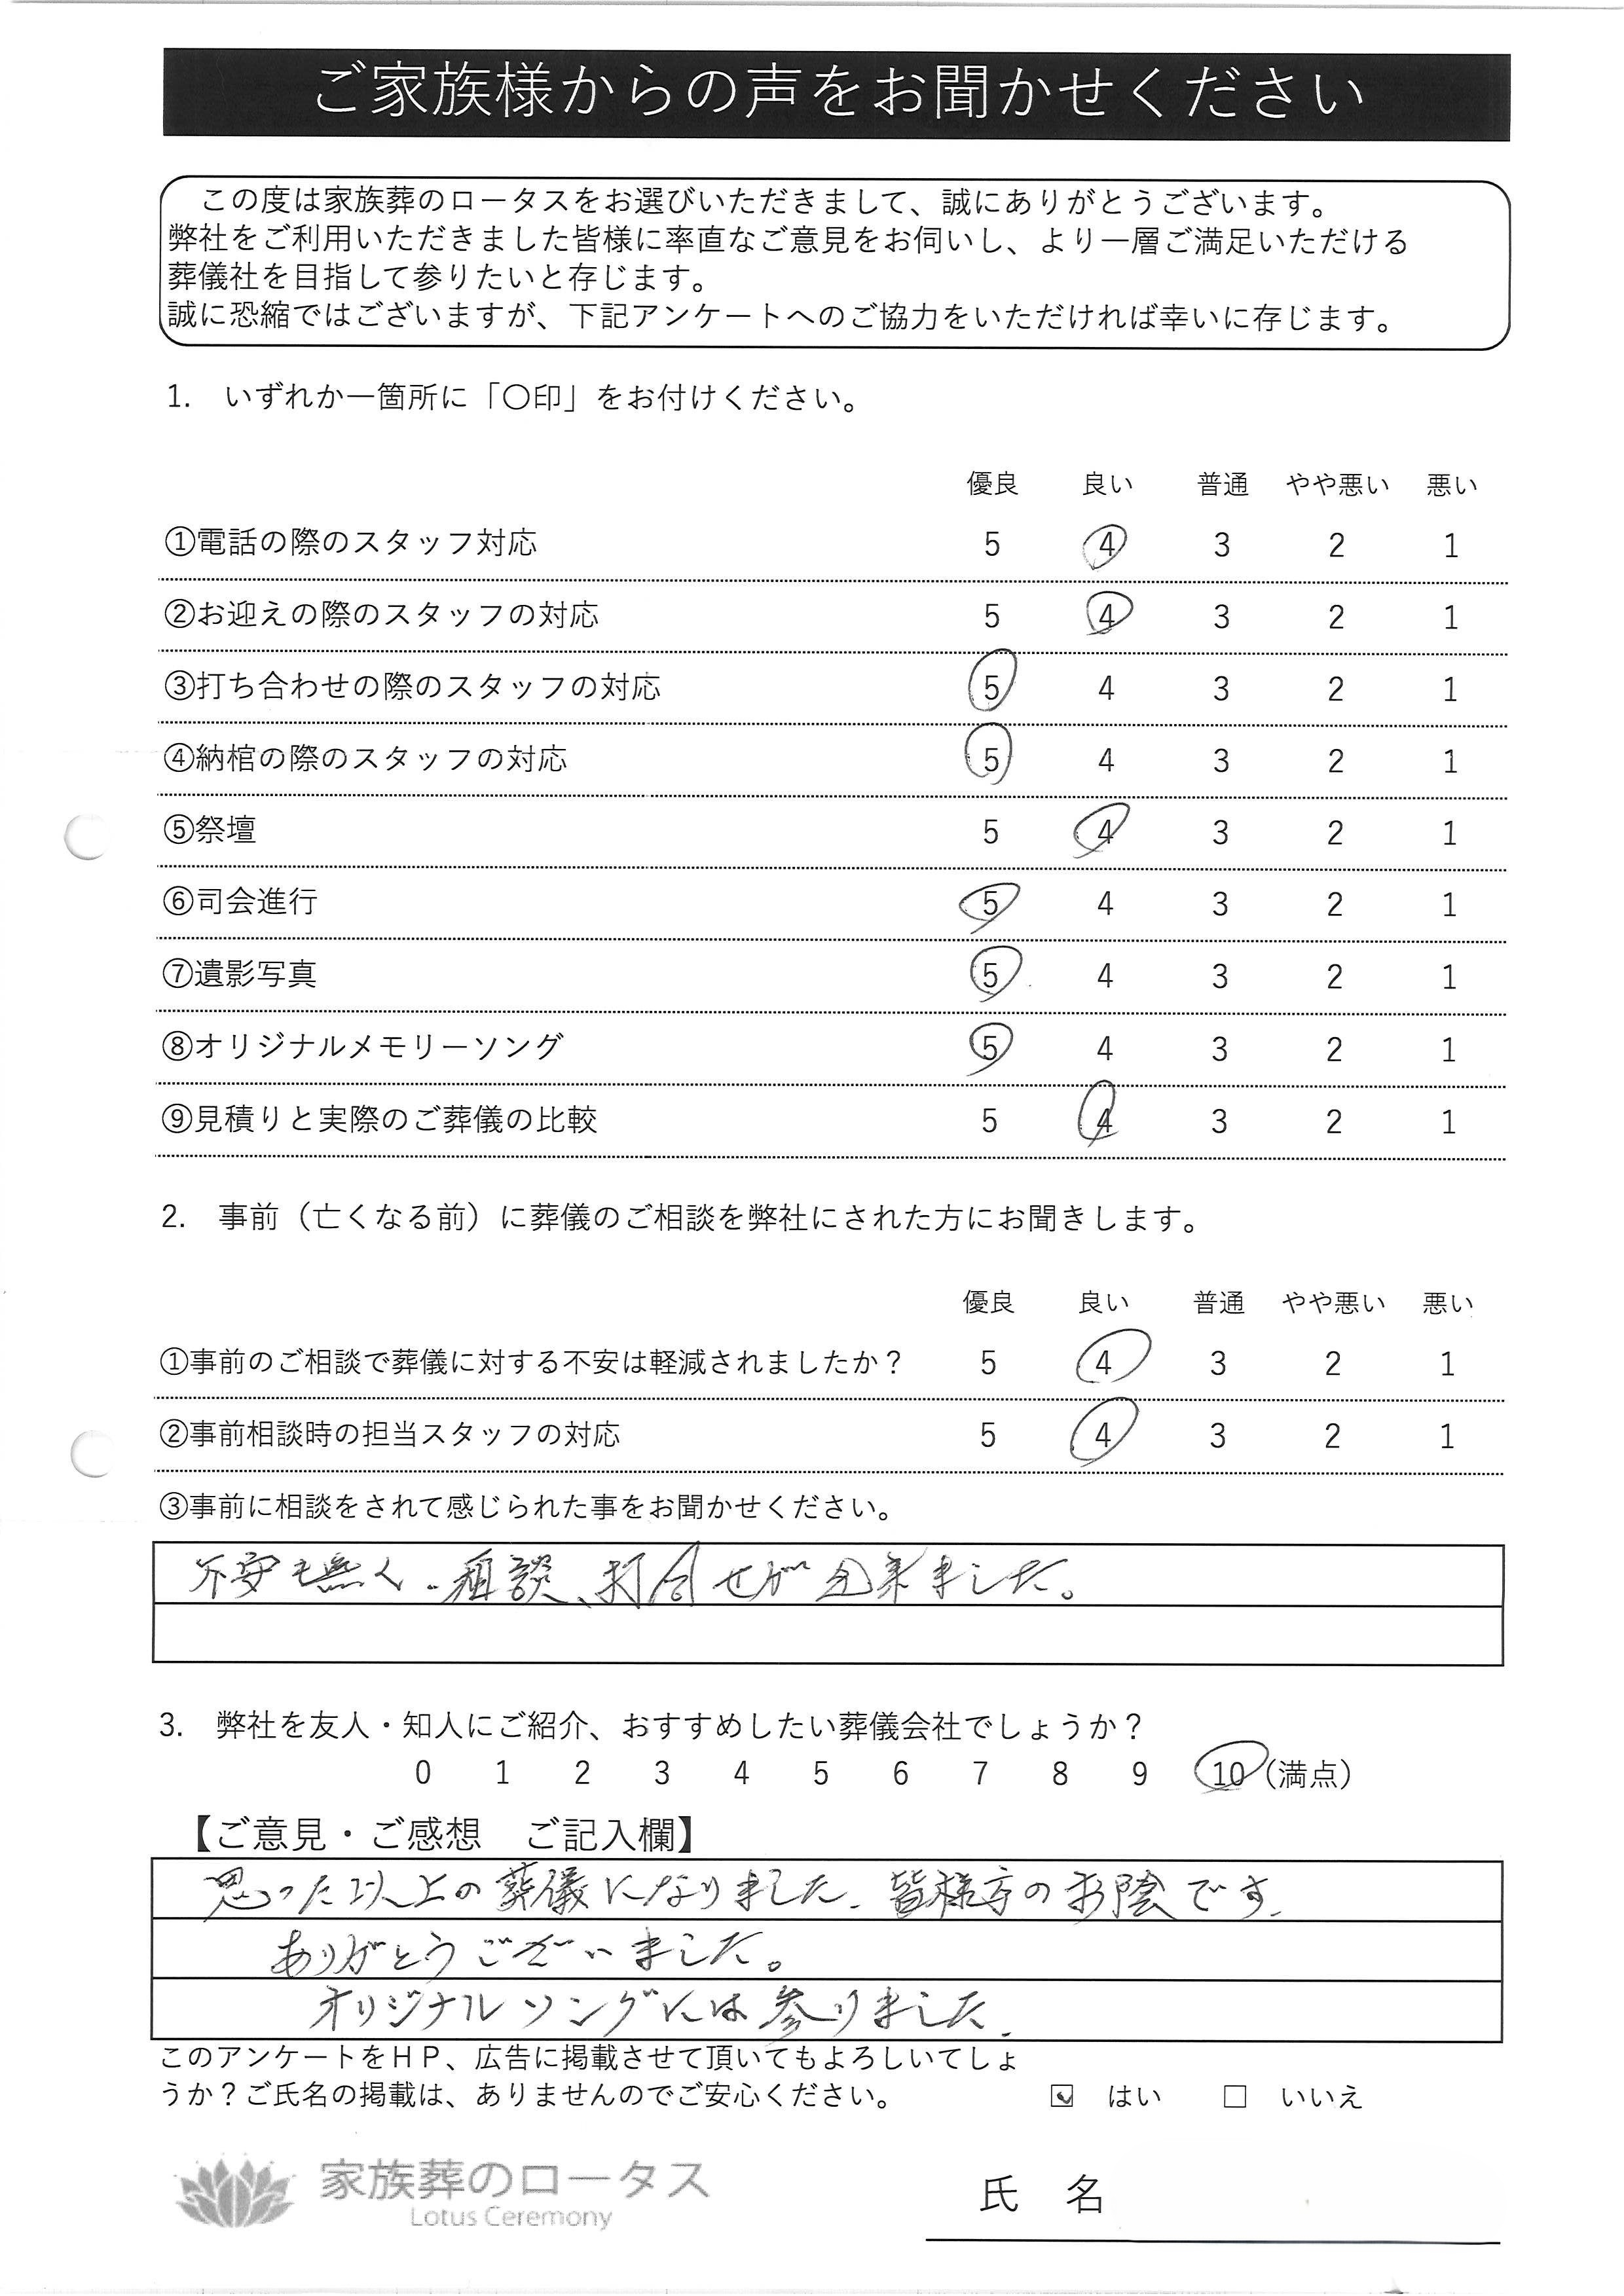 ご家族様からの声をお聞かせください
この度は家族葬のロータスをお選びいただきまして、誠にありがとうございます。
弊社をご利用いただきました皆様に率直なご意見をお伺いし、より一層ご満足いただける
葬儀社を目指して参りたいと存じます。
誠に恐縮ではございますが、下記アンケートへのご協力をいただければ幸いに存じます。
1. いずれか一箇所に「〇印」をお付けください。
優良 良い 普通 やや悪い 悪い
①電話の際のスタッフ対応 5 4 3 2 1
②お迎えの際のスタッフの対応 5 4 3 2 1
③打ち合わせの際のスタッフの対応 5 4 3 2 1
④納棺の際のスタッフの対応 5 4 3 2 1
⑤祭壇 5 4 3 2 1
⑥司会進行 5 4 3 2 1
⑦遺影写真 5 4 3 2 1
⑧オリジナルメモリーソング 5 4 3 2 1
⑨見積りと実際のご葬儀の比較 5 4 3 2 1
2. 事前（亡くなる前）に葬儀のご相談を弊社にされた方にお聞きします。
優良 良い 普通 やや悪い 悪い
①事前のご相談で葬儀に対する不安は軽減されましたか？ 5 4 3 2 1
②事前相談時の担当スタッフの対応 5 4 3 2 1
③事前に相談をされて感じられた事をお聞かせください。
不安も無く、相談、打合せが出来ました。
3. 弊社を友人・知人にご紹介、おすすめしたい葬儀会社でしょうか？
0 1 2 3 4 5 6 7 8 9 10（満点）
【ご意見・ご感想 ご記入欄】
思った以上の葬儀になりました。皆様方のお陰です。
ありがとうございました。
オリジナルソングには参りました。
このアンケートをＨＰ、広告に掲載させて頂いてもよろしいてしょ
うか？ご氏名の掲載は、ありませんのでご安心ください。 ☑ はい □ いいえ
家族葬のロータス
Lotus Ceremony
氏 名